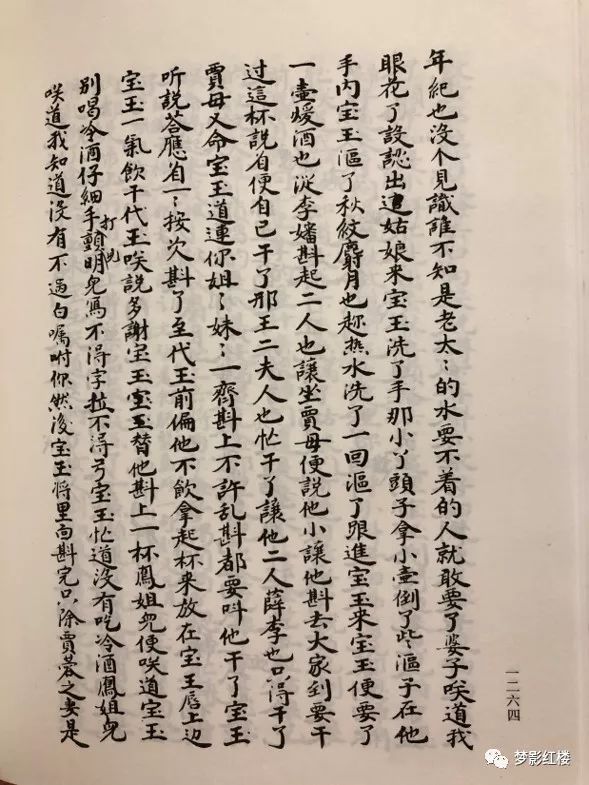 年紀也没个見識誰不知是老太〻的水要不着的人就敢要了婆子咲道我
眼花了没認出這姑娘来宝玉洗了手那小丫頭子拿小壶倒了些漚子在他
手内宝玉漚了秋紋麝月也趂热水洗了一回漚了跟進宝玉来宝玉便要了
一壶煖酒也従李嬸斟起二人也讓坐賈母便説他小讓他斟去大家到要干
过這杯説着便自己干了邢王二夫人也忙干了讓他二人薛李也只得干了
賈母又命宝玉道連你姐〻妹〻一齊斟上不許乱斟都要呌他干了宝玉
听説答應着一〻按次斟了至代玉前偏他不飲拿起杯来放在宝玉唇上边
宝玉一氣飲干代玉咲説多謝宝玉宝玉替他斟上一杯鳳姐兒便咲道宝玉
别喝冷酒仔細手顫明兒寫不得字拉不得弓宝玉忙道没有吃冷酒鳳姐兒
打 兒
咲道我知道没有不過白嘱咐你然後宝玉将里面斟完只除賈蓉之妻是
一二六四
梦影红楼